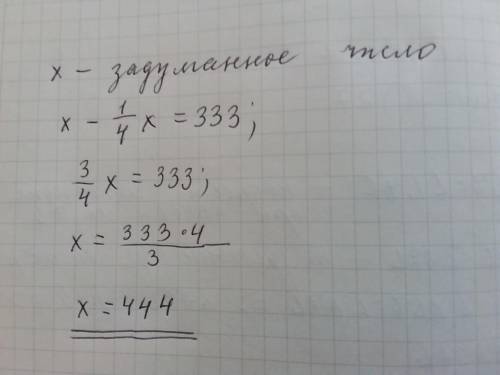 x - задуманное число
x - 1/4 x = 333;
3/4 x = 333;
x = 333·4/3
x = 444